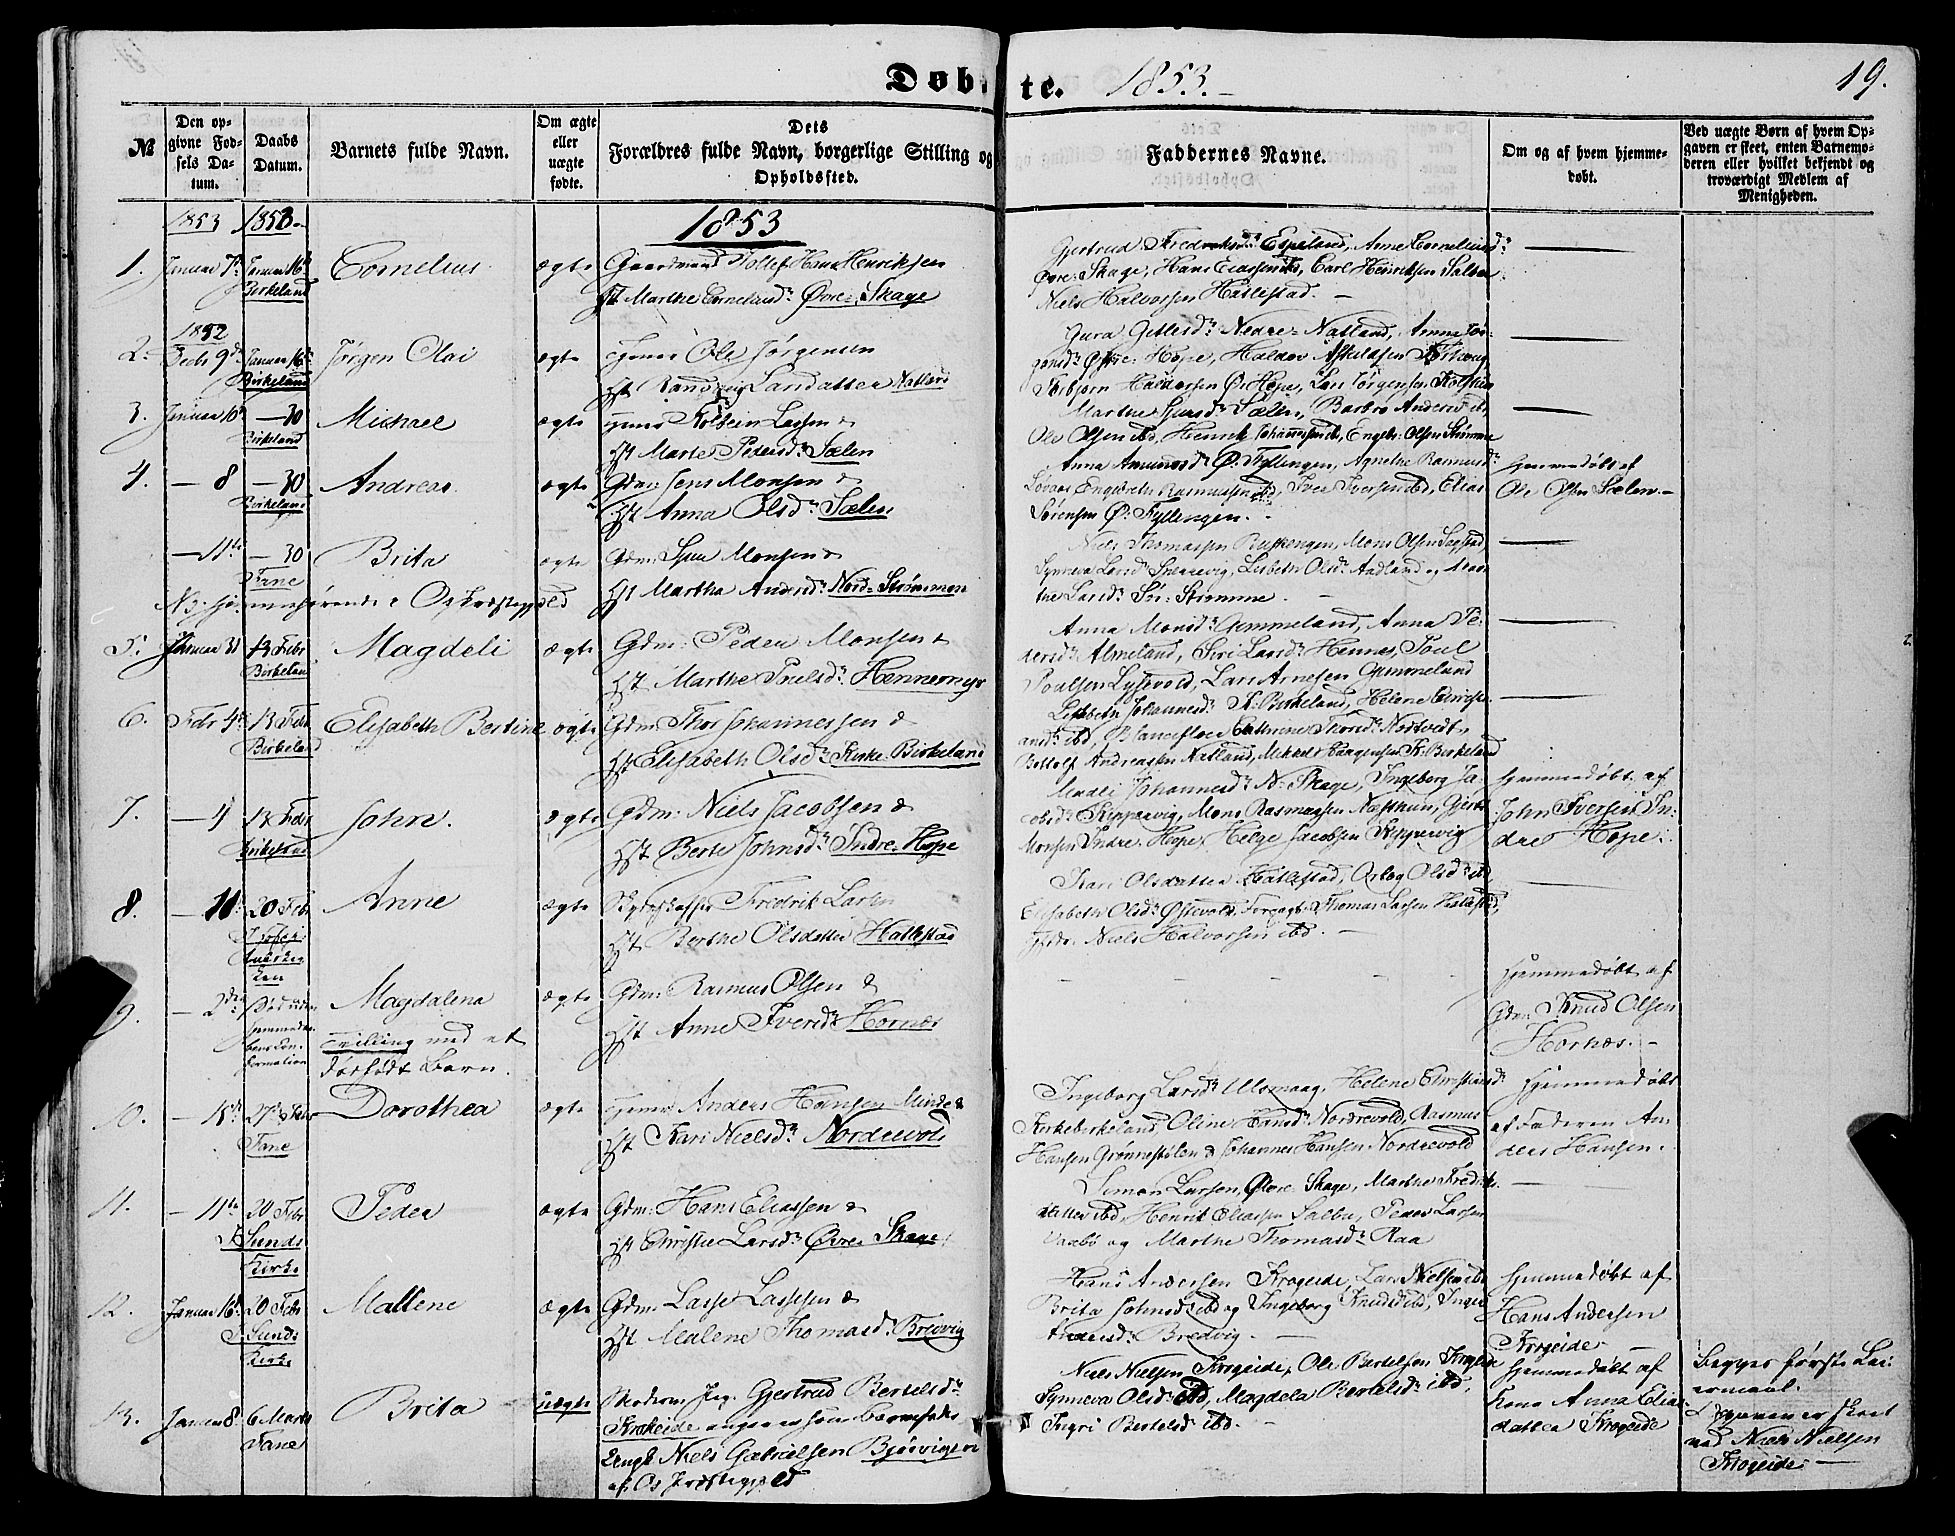 Døbte. 1853.
19.
№
Den opgivne Fødsels Datum.
Daabs Datum.
Barnets fulde Navn.
Om ægte eller uægte fødte.
Dets Forældres fulde Navn, borgerlige Stilling og Opholdssted.
Faddernes Navne.
Om og af hvem hjemmedøbt.
Ved uægte Børn af hvem Opgaven er skeet, enten Barnemoderen eller hvilket bekjendt og troværdigt Medlem af Menigheden.
1853 1853. 1853
1. Januar 7de Januar 16de Birkeland
Cornelius.
ægte
Gaardmand Tollef Hans Henriksen
Hst Marthe Corneliusdr. Øvre Skage
Gjertrud Fredriksdr. Espeland, Anne Corneliusdr.
Øvre Skage, Hans Eliassen ibd, Carl Henriksen Salbu
Niels Halvorsen Hatlestad. —
1852
2. Febr 9de Januar 16de Birkeland
Jørgen Olai
ægte
Ole Jørgensen
Hst Larsdatter Natland
Gura Gitlesdr. Nedre Natland, Anna Jør-
gensdr. Øvre Hope, Haldor Askeldsen
Torbjørn Haldorsen Ø. Hope, Lars Jørgensen
3. Januar 10de — 30 Birkeland
Michael
ægte
Kolbein Lassen &
Hst Marte Pedersdr. Sælen
Marthe Sjursdr. Sælen, Barbro Andersdr. ibd
Ole Olsen ibd, Henrik Johannessen ibd, Engebr. Olsen Strømme
4. — 8 — 30 Birkeland
Andreas.
ægte
Gdm: Jens Monsen &
Hst Anna Olsdr. Sælen
Anna Amundsdr. Ø. Fyllingen, Agnethe Rasmusdr.
Løvaas Engebreth Rasmussen ibd, Iver Iversen ibd, Elias
Sørensen Ø. Fyllingen.
Hjemmedøbt af
Ole Olsen Sælen. —
— 11te — 30 Fane
Brita
ægte
Gdm: Monsen &
Hst Martha Andersdr. Nord Strømmen
Niels Thomassen Ruskengen, Mons Olsen
Synneva Larsdr. Skeievig, Lisbeth Olsdr. Aadland, Mar-
the Larsdr. Strømme.
NB. hjemmehørende i Os Præstegjeld
5. Januar 31 13 Febr Birkeland
Magdeli
ægte
Gdm: Peder Monsen &
Hst Marthe Poulsdr. Hennemyr
Anna Monsdr. Gemmeland, Anna Pe-
dersdr. Almeland, Siri Larsdr. Hennes, Poul
Poulsen Lysevold, Lars Arnesen Gemmeland
6. Febr 4de 13 Febr Birkeland
Elisabeth Bertine
ægte
Gdm: Thor Johannessen &
Hst Elisabeth Olsdr. Kirke Birkeland
Lisbeth Johannesdr. K. Birkeland, Helene Christi-
ansdr. ibd, Blanceflor Cathrine Thorsdr. Nordtvedt,
Bottolf Andreassen Natland, Mikkel K. Birkeland
7. — 4 13 Febr Birkeland
John.
ægte
Gdm: Niels Jacobsen &
Hst Berte Johnsdr. Indre Hope
Madli Johannesdr. N. Skage, Ingeborg Ja-
cobsdr. Kippervig, Mons Rasmussen Næsthun,
Monsen Indre Hope, Helge Jacobsen Kippervig
Hjemmedøbt af
John Iversen In-
dre Hope.
8. — 10. 20 Febr
Anne
ægte
Skydsskaffer Fredrik Larsen
Hst Berthe Olsdatter Hatlestad
Kari Olsdatter Hatlestad, Olsdr. ibd,
Elisabeth Olsdr. Østevold, Thomas Larsen Hatlestad,
Niels Halvorsen ibd. —
9. — 2den
Død uden
Hjemmedaa-
bens Con-
firmation
Magdalena
Tvilling med et
dødfødt Barn.
ægte
Gdm: Rasmus Olsen &
Hst Anne Iversdr. Hornæs
Hjemmedøbt af
Gdm: Knud Olsen
Hornæs. —
10. — 15de 27de Febr Fane
Dorothea
ægte
Anders Hansen Minde &
Hst Kari Nielsdr. Nordrevold
Ingeborg Larsdr. Ulsmaag, Helene Christiansdr.
Kirkebirkeland, Oline Hansdr. Nordrevold, Rasmus
Hansen Grønnestølen & Johannes Hansen Nordrevold
Hjemmedøbt
af Faderen An-
ders Hansen.
11. — 11te 20 Febr
I Sunds
Kirke
Peder
ægte
Gdm: Hans Eliassen &
Hst Christie Larsdr. Øvre Skage
Simon Larsen Øvre Skage, Marthe Fredriks-
datter ibd, Henrik Eliassen Salbu, Peder Larsen
og Marthe Thomasdr. Raa
12. Januar 16de 20 Febr
I Sunds
Kirke
Mallene
ægte
Gdm: Lasse Lassesen &
Hst Malene Thomasdr. Bredvig
Hans Andersen Krogeide, Lars Nielsen ibd
Brita Johnsdr. ibd og Ingeborg Knudsdr. ibd, Inger
Andersdr. Bredvig. —
Hjemmedøbt af
Hans Andersen
Krogeide —
13. Januar 8. 6 Marts Fane
Brita
uægte
Moderen Pig. Gjertrud Bertelsdr.
Krokeide angiver som Barnefader
Ungk Niels Gabrielsen Bjørvigen
af Os Præstegjeld
Niels Nielsen Krogeide, Ole Bertelsen Krogeide
Synneva Olsdr. ibd, Magdela Bertelsdr. ibd,
Ingri Bertelsdr. ibd. —
Hjemmedøbt af
Kone Anna Elias-
datter Krogeide
Begges første Lei-
ermaal.
Opgaven er skeet
ved Niels Nielsen
Krogeide —